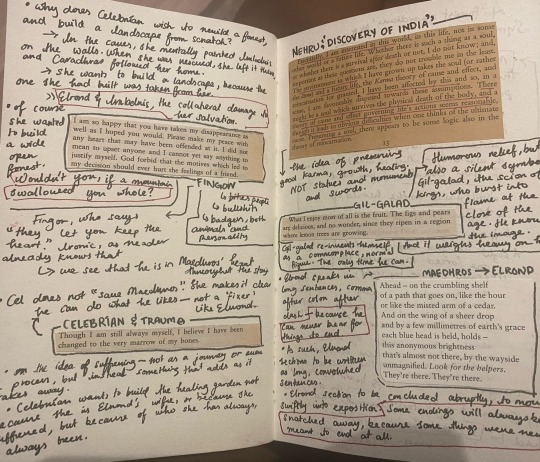 • Why does Celebrian wish to rebuild a forest,
and build a landscape from scratch?
→ In the caves, she mentally painted Imladris
on the walls. When she was rescued, she left it there,
and Caradhras followed her home.
→ She wants to build a landscape, because the
one she had built was taken from her.
Elrond & Imladris, the collateral damage to
her salvation.
• of course
she wanted
to build
a wide
open
forest.
I am so happy that you have taken my disappearance as
well as I hoped you would. Please make my peace with
any heart that may have been offended at it. I did not
mean to upset anyone and I cannot yet say anything to
justify myself. God forbid that the motives which led to
my decision ever hurt the feelings of a friend.
Wouldn't you, if a mountain
swallowed you whole?
FINGON
↳ bites people
↳ bullshits
↳ badgers, both
animals and
personality
Fingon, who says
"they let you keep the
heart." Ironic, as reader
already knows that
↳ we see that he is in Maedhros' heart
throughout the story
• Cel does not "save Maedhros". She makes it clear
he can do what he likes – not a 'fixer'
like Elrond.
CELEBRIAN & TRAUMA
Though I am still always myself, I believe I have been
changed to the very marrow of my bones.
• on the idea of suffering – not as a journey or even
process, but instead something that adds as it
takes away.
• Celebrian wants to build the healing garden not
because she is Elrond's wife, or because she
suffered, but because of who she has always,
always been.
NEHRU, "DISCOVERY OF INDIA"
in this life, not in some
other world or a future life. Whether there is such a thing as a soul,
or whether there is a survival after death or not, I do not know; and,
important as these questions are, they do not trouble me in the least.
The environment in which I have grown up takes the soul (or rather
the atma) and a future life, the Karma theory of cause and effect, and
reincarnation for granted. I have been affected by this and so, in a
sense, I am favourably disposed towards these assumptions. There
might be a soul which survives the physical death of the body, and a
theory of cause and effect governing life's actions seems reasonable,
though it leads to obvious difficulties when one thinks of the ultimate
cause. Presuming a soul, there appears to be some logic also in the
theory of reincarnation.
13
the idea of preserving
good karma, growth, healing,
NOT statues and monuments
and swords.
Humorous relief, but
also a silent symbol
Gil-galad, the scion of
kings, who burst into
flame at the
close of the
age. He knows
the image.
And it weighs heavy on h
GIL-GALAD
What I enjoy most of all is the fruit. The figs and pears
are delicious, and no wonder, since they ripen in a region
where lemon trees are growing.
Gil-galad re-invents himself
as a commonplace, normal
figure. The only time he can.
• Elrond speaks in
long sentences, comma
after colon after
dash – because he
can never bear for
things to end.
• As such, Elrond
sections to be written
as long, convoluted
sentences.
• Elrond section to be concluded abruptly, to move
swiftly into exposition
Some endings will always be
snatched away, because some things were never
meant to end at all.
MAEDHROS → ELROND
Ahead – on the crumbling shelf
of a path that goes on, like the hour
or like the misted arm of a cedar.
And on the wing of a sheer drop
and by a few millimetres of earth's grace
each blue bead is held, holds –
this anonymous brightness
that's almost not there, by the wayside
unmagnified. Look for the helpers.
They're there. They're there.